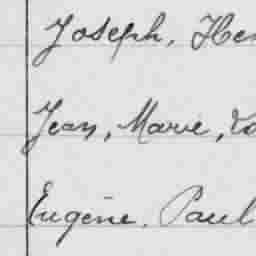 Joseph, Hen
Jean, Marie, Lo
Eugène. Paul